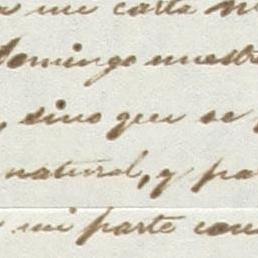 a mi carta
domingo nuestr
, sino que se
natural, y pa
mi parte con